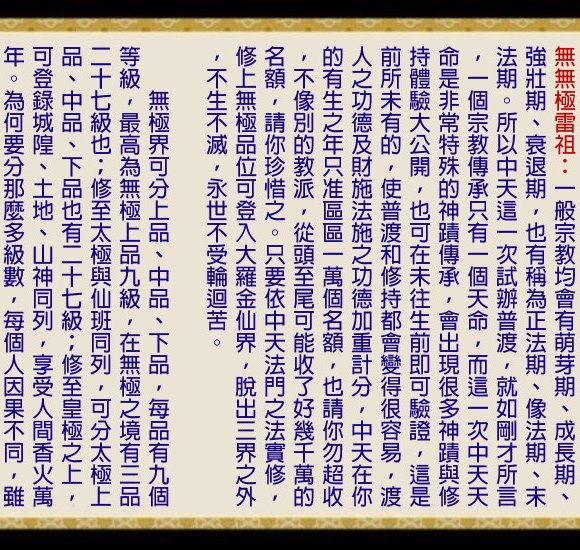 無無極雷祖：一般宗教均會有萌芽期、成長期、
強壯期、衰退期，也有稱為正法期、像法期、末
法期。所以中天這一次試辦普渡，就如剛才所言
，一個宗教傳承只有一個天命，而這一次中天天
命是非常特殊的神蹟傳承，會出現很多神蹟與修
持體驗大公開，也可在未往生前即可驗證，這是
前所未有的，使普渡和修持都會變得很容易，渡
人之功德及財施法施之功德加重計分，中天在你
的有生之年只准區區一萬個名額，也請你勿超收
，不像別的教派，從頭至尾可能收了好幾千萬的
名額，請你珍惜之。只要依中天法門之法實修，
修上無極品位可登入大羅金仙界，脫出三界之外
，不生不滅，永世不受輪迴苦。
無極界可分上品、中品、下品，每品有九個
等級，最高為無極上品九級，在無極之境有三品
二十七級也；修至太極與仙班同列，可分太極上
品、中品、下品也有二十七級；修至皇極之上，
可登錄城隍、土地、山神同列，享受人間香火萬
年。為何要分那麼多級數，每個人因果不同，雖